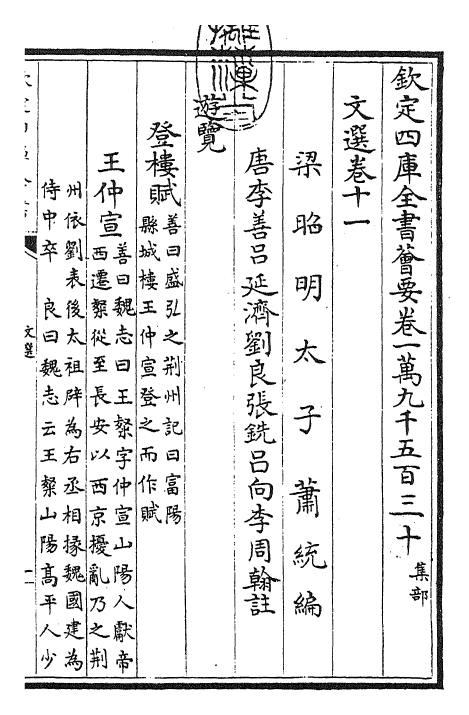 欽定四庫全書薈要卷一萬九千五百三十
集部
文選卷十一
梁昭明太子蕭統編
唐李善呂延濟劉良張銑呂向李周翰註
遊覽
登樓賦
善曰盛弘之荆州記曰富陽
縣城樓王仲宣登之而作賦
王仲宣
善曰魏志曰王粲字仲宣山陽人獻帝
西遷粲從至長安以西京擾亂乃之荆
州依劉表後太祖辟為右丞相掾魏國建為
侍中卒　良曰魏志云王粲山陽髙平人少
文選